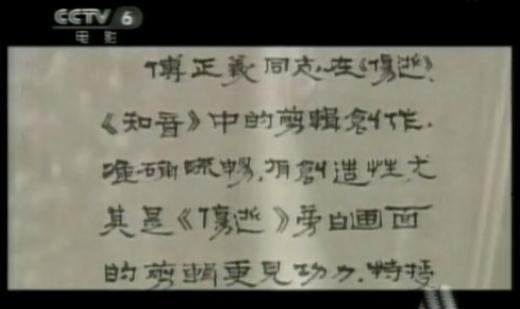 CCTV 6
电影
傅正義同志在《傷逝》、
《知音》中的剪輯創作，
準确流暢，有創造性，尤
其是《傷逝》旁白画面
的剪輯更見功力，特授